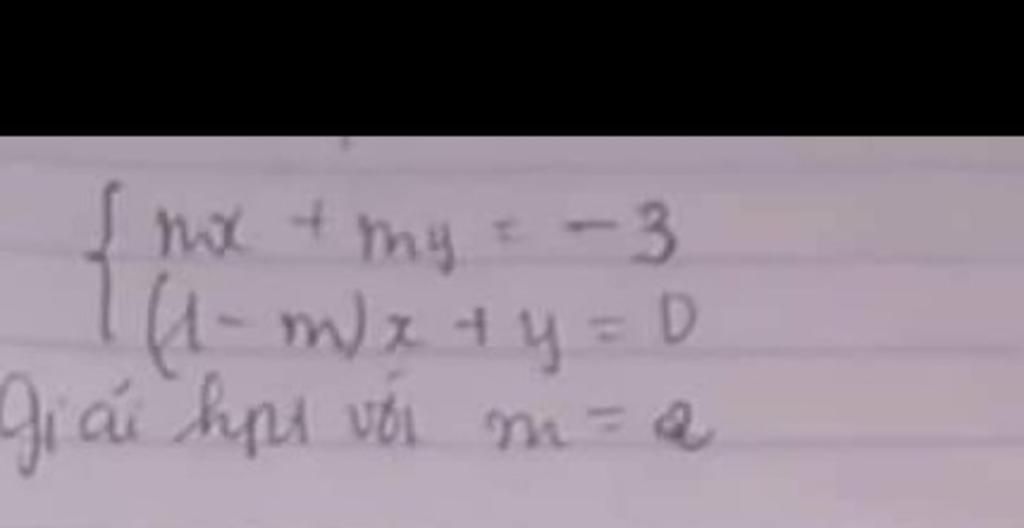 { mx + my = -3
(1 - m)x + y = 0
Giải hpt với m = 2